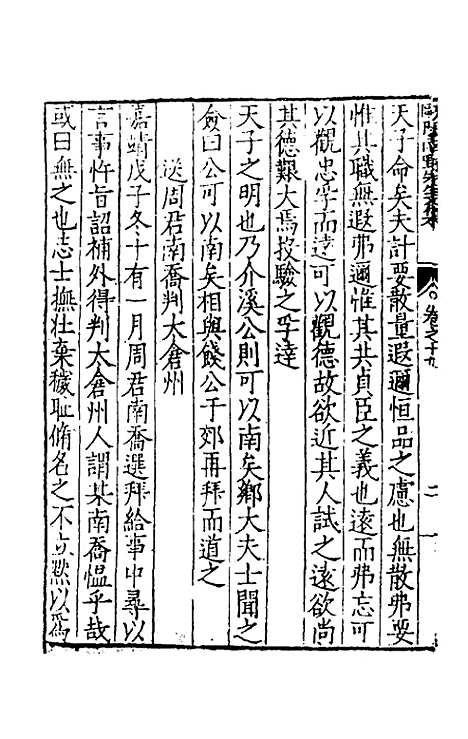 卷之十九
二
天子命矣夫計要散量遐邇恒品之慮也無散弗要
惟其職無遐弗邇惟其共貞臣之義也遠而弗忘可
以觀忠孚而達可以觀德故欲近其人試之遠欲尚
其德艱大焉投驗之孚達
天子之明也乃介溪公則可以南矣鄉大夫士聞之
僉曰公可以南矣相與餞公于郊再拜而道之
送周君南喬判太倉州
嘉靖戊子冬十有一月周君南喬選拜給事中尋以
言事忤旨詔補外得判太倉州人謂某南喬慍乎哉
或曰無之也志士撫壯棄穢耻脩名之不立然以爲